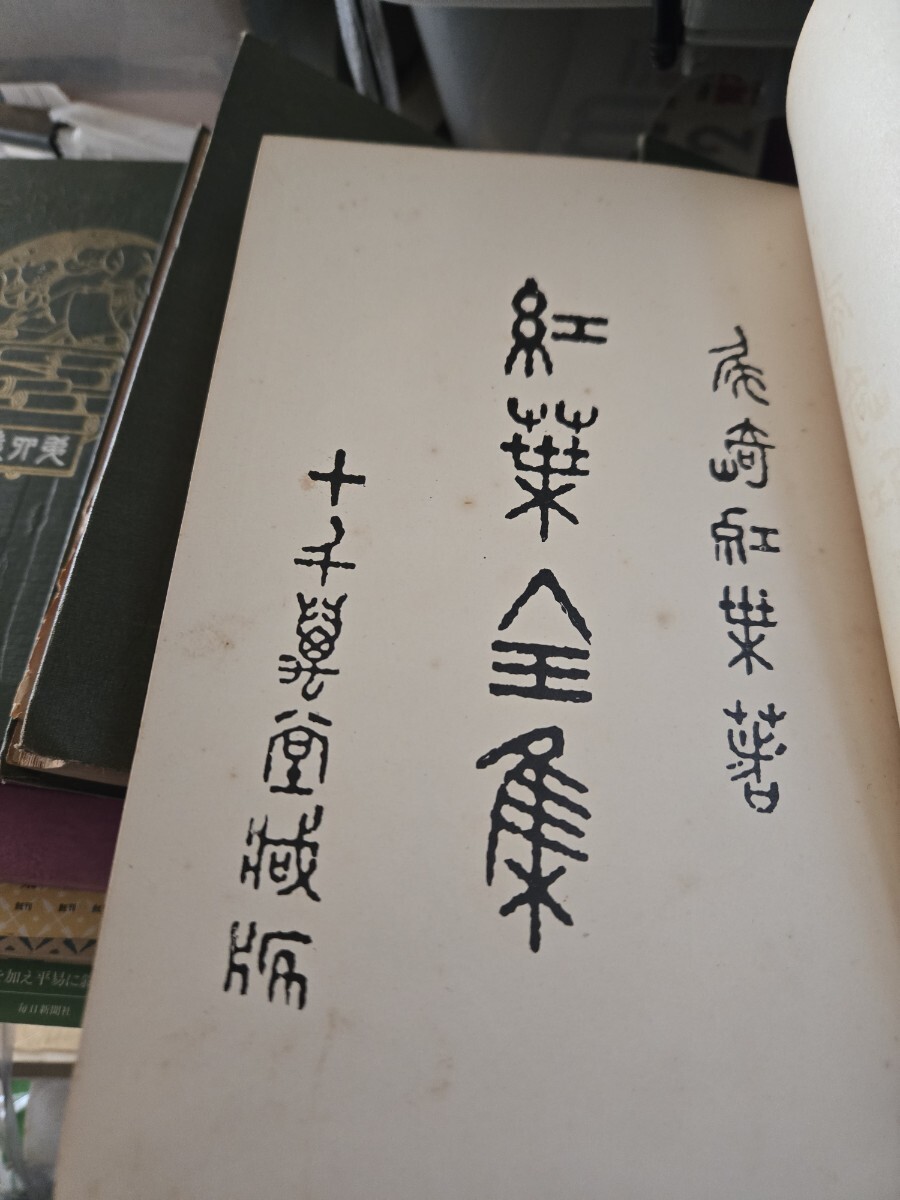 尾崎紅葉著
紅葉全集
十千萬堂藏版
を加え平易に
毎日新聞社